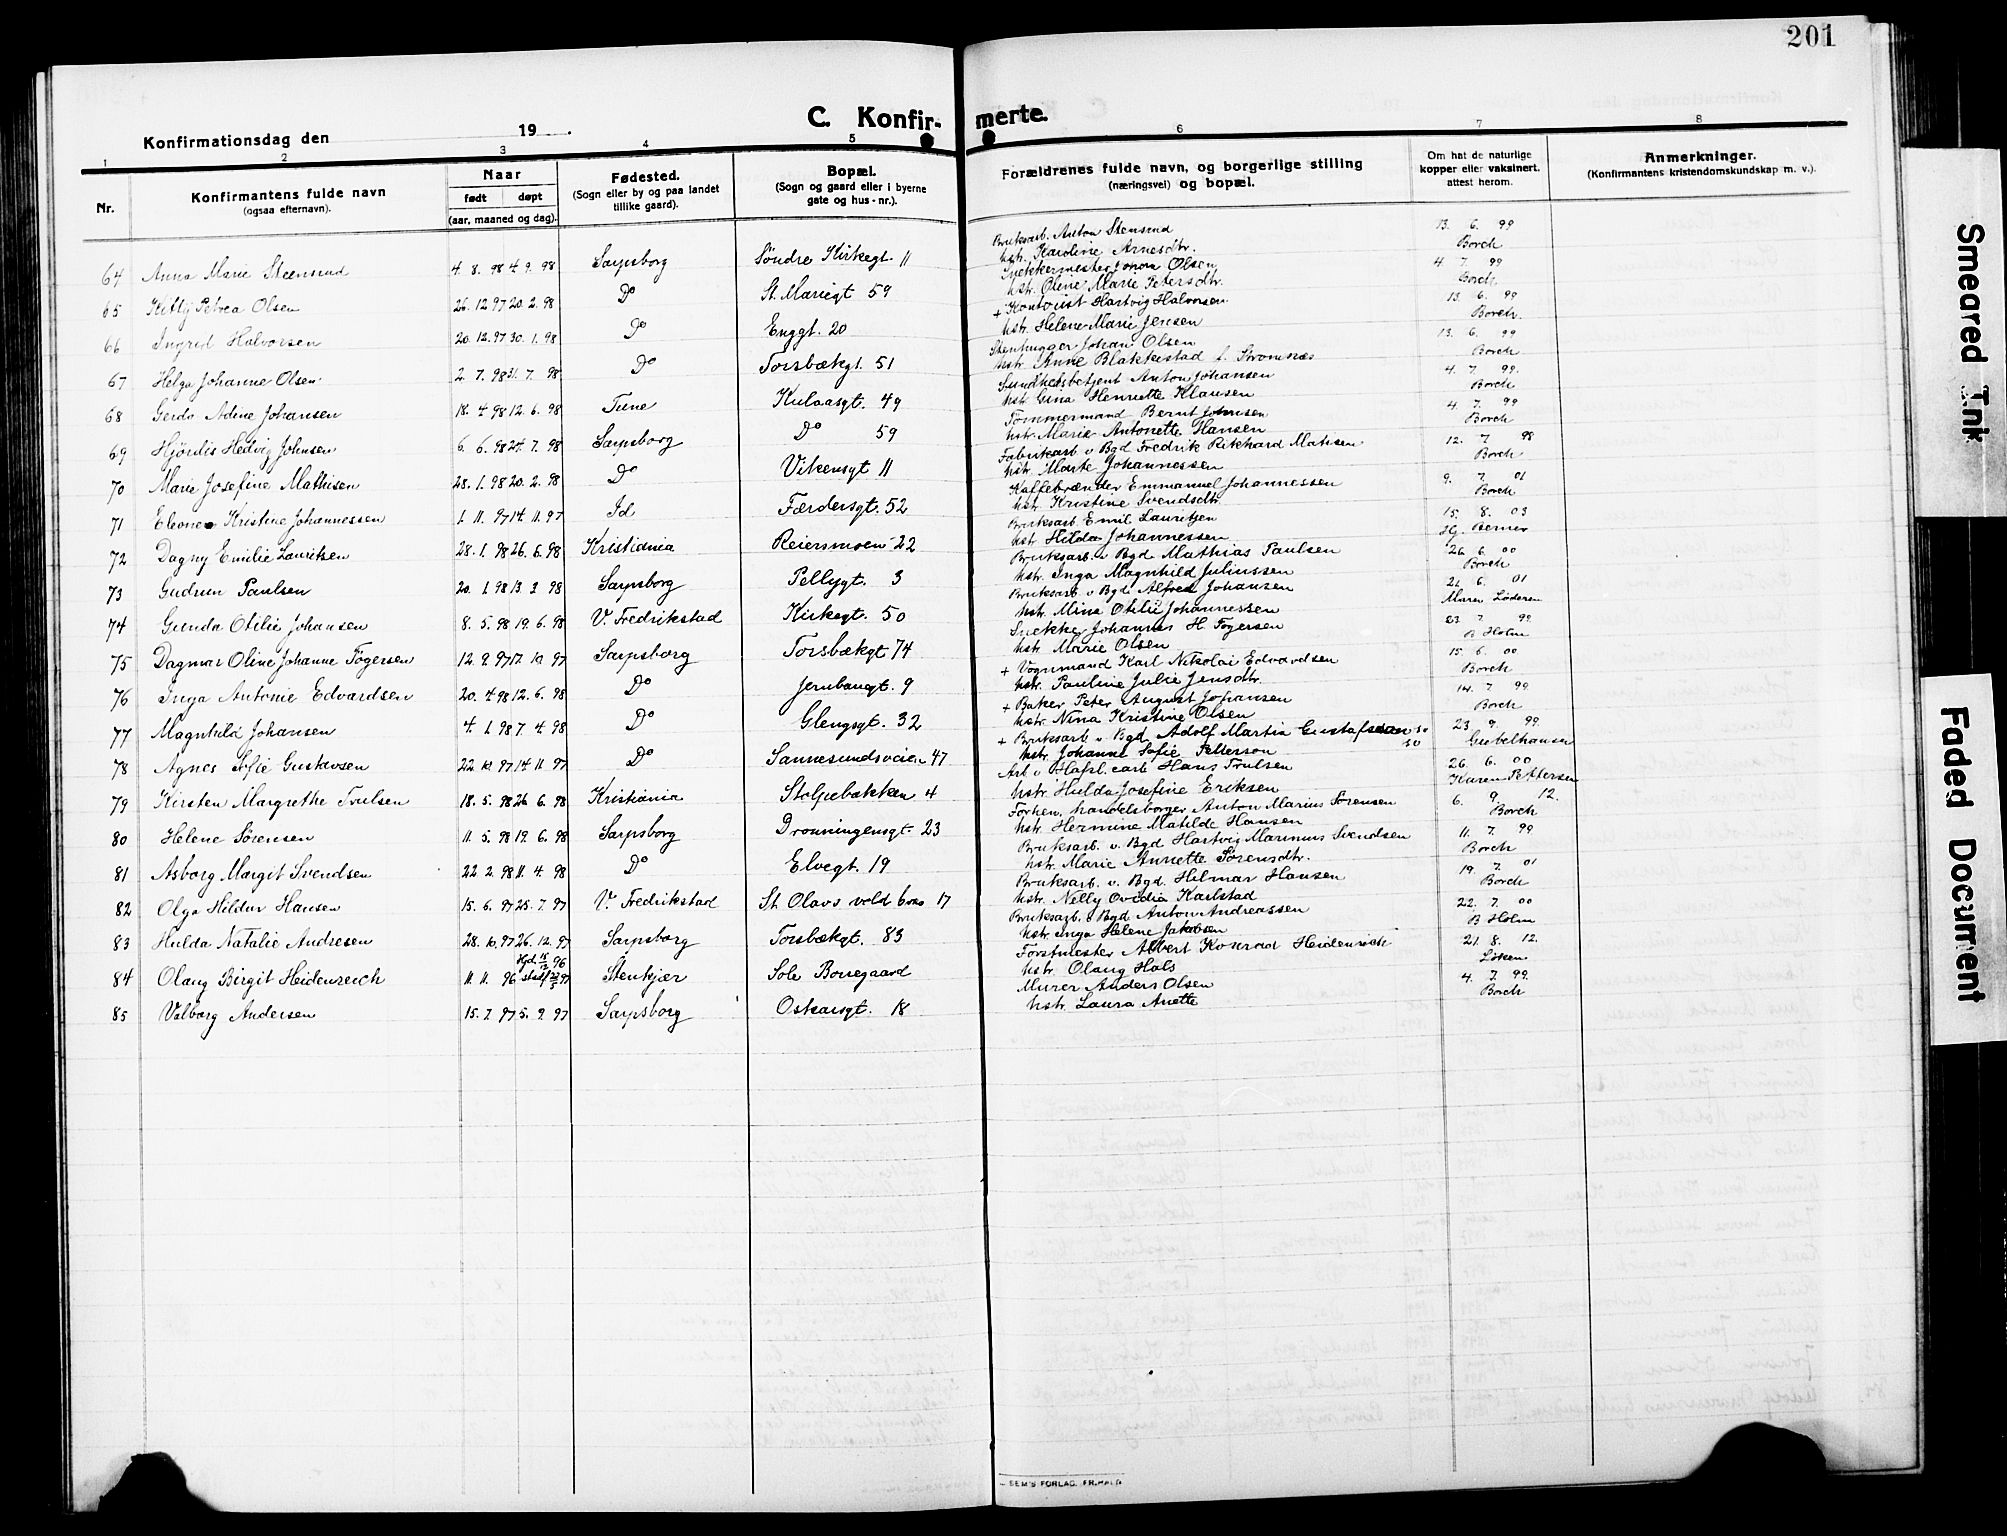 201
C. Konfir- merte.
Konfirmationsdag den 19 .
1 2 3 4 5 6 7 8
Nr.
Konfirmantens fulde navn
(ogsaa efternavn).
Naar
født døpt
(aar, maaned og dag).
Fødested.
(Sogn eller by og paa landet
tillike gaard).
Bopæl.
(Sogn og gaard eller i byerne
gate og hus-nr.).
Forældrenes fulde navn, og borgerlige stilling
(næringsvei) og bopæl.
Om hat de naturlige
kopper eller vaksinert,
attest herom.
Anmerkninger.
(Konfirmantens kristendomskundskap m. v.).
64 Anna Marie Steensrud 4. 8. 98 4. 9. 98 Sarpsborg Söndre Kirkegt. 11 Bruksarb. Anton Stensrud 13. 6. 99
hstr. Karoline Arnesdtr. Borch
65 Kitty Petrea Olsen 26. 12. 97 20. 2. 98 Do St. Mariegt 59 Snekkermester Johan Olsen 4. 7. 99
hstr. Oline Marie Petersdtr. Borch
66 Ingrid Halvorsen 20. 12. 97 30. 1. 98 Do Enggt. 20 + Kontorist Hartvig Halvorsen 13. 6. 99
hstr. Helene Marie Jensen Borch.
67 Helga Johanne Olsen 2. 7. 98 31. 7. 98 Do Torsbækgt. 51 Stenhugger Johan Olsen 13. 6. 99
hstr. Anne Blakkestad f. Stromnæs Borch
68 Gerda Adine Johansen 18. 4. 98 12. 6. 98 Tune Kulaasgt. 49 Sundhetsbetjent Anton Johansen 4. 7. 99.
hstr. Gina Henriette Klausen Borch
69 Hjördis Hedvig Johnsen 6. 6. 98 24. 7. 98 Sarpsborg Do 59 Tömmermand Bernt Johnsen 4. 7. 99
hstr. Marie Antonette Hansen Borch
70 Marie Josefine Mathisen 28. 1. 98 20. 2. 98 Do Vikensgt 11 Fabrikarb v Bgd Fredrik Rikhard Matisen 12. 7. 98
hstr. Marte Johannessen Borch
71 Eleone Kristine Johannessen 1. 11. 97 14. 11. 97 Id Færdersgt. 52 Kaffebrænder Emmanuel Johannessen 9. 7. 01
hstr. Kristine Svendsdtr. Borch
72 Dagny Emilie Lauritsen 28. 1. 98 26. 6. 98 Kristiania Reiersmoen 22 Bruksarb. Emil Lauritzen 15. 8. 03
hstr. Hilda Johannessen Hj. Berner
73 Gudrun Paulsen 20. 1. 98 13. 3 98 Sarpsborg Pellygt. 3 Bruksarb. v Bgd Mathias Paulsen 26. 6. 00
hstr. Inga Magnhild Juliussen Borch
74 Gunda Otilie Johansen 8. 5. 98 19. 6. 98 V. Fredrikstad Kirkegt. 50 Bruksarb. v Bgd Alfred Johansen 21. 6. 01
hstr. Mina Otilie Johannessen Maren Löderen
75 Dagmar Oline Johanne Fogersen 12. 9. 97 17. 10. 97 Sarpsborg Torsbækgt 74 Snekker Johannes H. Fogersen 23 7. 99
hstr. Marie Olsen B Holm
76 Inga Antonie Edvardsen 20. 4. 98 12. 6. 98 Do Jernbanegt. 9 + Vognmand Karl Nikolai Edvardsen 15. 6. 00
hstr. Pauline Julie Jensdtr. Borch
77 Magnhild Johansen 4. 1. 98 7. 4. 98 Do Glengsgt. 32 + Baker Peter August Johansen 14. 7. 99.
hstr. Nina Kristine Olsen Borch
78 Agnes Sofie Gustavsen 22 10. 97 14 11. 97 Do Sannesundsveien 47 + Bruksarb v. Bgd Adolf Martin Gustafsson 23. 9. 99
hstr. Johanne Sofie Petterson Gubelhausen
79 Kirsten Margrethe Trulsen 18. 5. 98 26 6. 98 Kristiania Stolpebakken 4 Arb v Hafsl. carb Hans Trulsen 26. 6. 00
hstr. Hulda Josefine Eriksen Karen Pettersen
80 Helene Sørensen 11. 5. 98 19. 6. 98 Sarpsborg Dronningensgt. 23 Forhen. handelsborger Anton Marius Sørensen 6. 9. 12.
hstr. Hermine Matilde Hansen Borch
81 Asborg Margit Svendsen 22 2. 98 11. 4. 98 Do Elvegt. 19 Bruksarb. v. Bgd Hartvig Marinius Svendsen 11. 7. 99
hstr. Marie Annette Sørensdtr. Borch
82 Olga Hildur Hansen 15. 6. 97 25. 7. 97 V. Fredrikstad St. Olavs vold bras 17 Bruksarb. v. Bgd. Hilmar Hansen 19. 7. 01
hstr. Nelly Ovidia Karlstad Borch
83 Hulda Natalie Andresen 28. 10. 97 26. 12. 97 Sarpsborg Torsbækgt. 83 Bruksarb. v Bgd Anton Andreassen 22. 7. 00
hstr. Inga Helene Jakobsen B Holm
84 Olaug Birgit Heidenreich 11. 11. 96 Hjd. 15/12 96 stadf 22/3 97 Stenkjær Sole Borregaard Forstmester Albert Konrad Heidenreich 21. 8. 12.
hstr. Olaug Hals Löken
85 Valborg Andersen 15. 7. 97 5. 9. 97 Sarpsborg Oskarsgt. 18 Murer Anders Olsen 4. 7. 99.
hstr. Laura Anette Borch
SEM'S FORLAG, FR.HALD
Smeared Ink
Faded Document